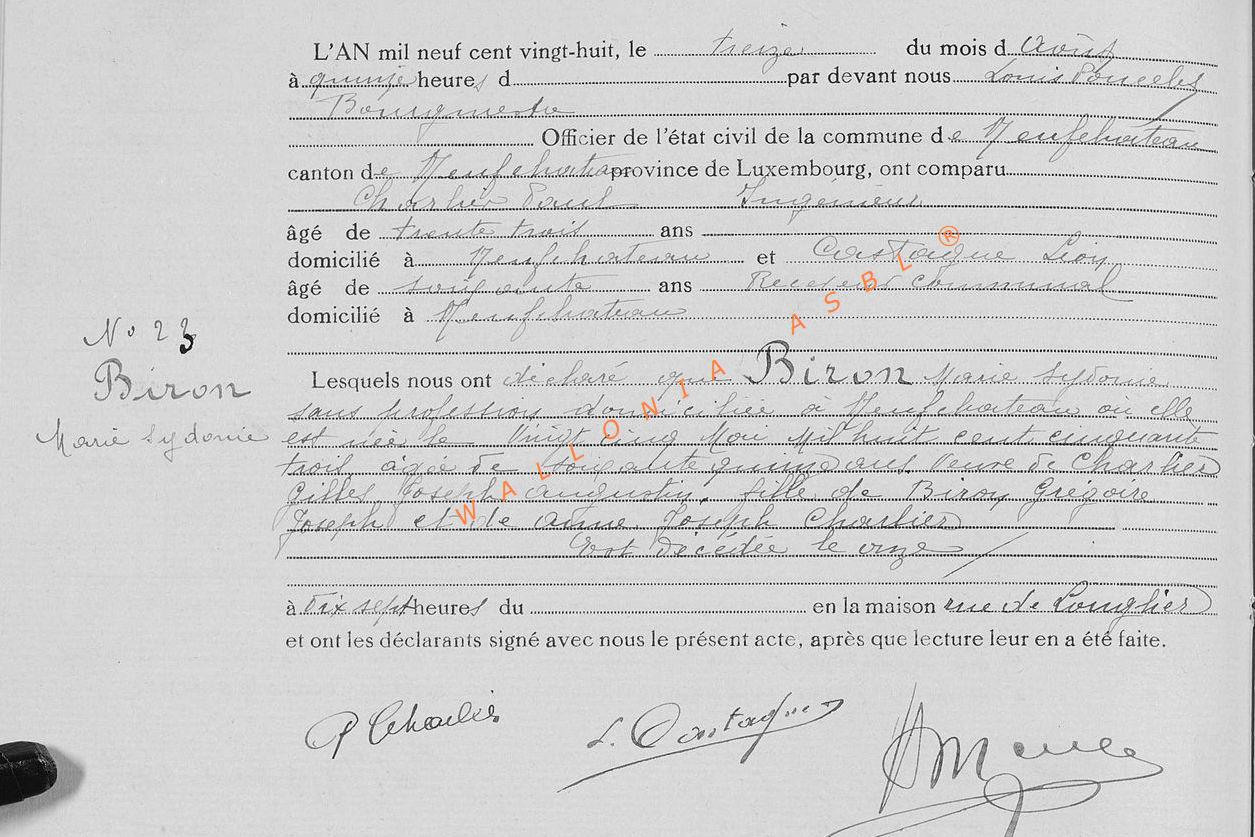 L'AN mil neuf cent vingt-huit, le treize du mois d'Août
à quinze heures d par devant nous Louis Poncelet
Bourgmestre
Officier de l'état civil de la commune de Neufchateau
canton de Neufchateau province de Luxembourg, ont comparu
Charlier Paul Ingénieur
âgé de trente trois ans
domicilié à Neufchateau et Castagne Léon
âgé de soixante ans Receveur Communal
domicilié à Neufchateau
N° 23
Biron
Marie Sydonie
Lesquels nous ont déclaré que Biron Marie Sydonie
sans profession domiciliée à Neufchateau où elle
est née le Vingt cinq Mai Mil huit cent cinquante
trois, âgée de soixante quinze ans, Veuve de Charlier
Gilles Joseph Augustin, fille de Biron Grégoire
Joseph et de Anne Joseph Charlier
Est décédée le onze
à Dix sept heures du en la maison rue de Longlier
et ont les déclarants signé avec nous le présent acte, après que lecture leur en a été faite.
P Charlier L. Castagne
WALLONIA ASBL ®